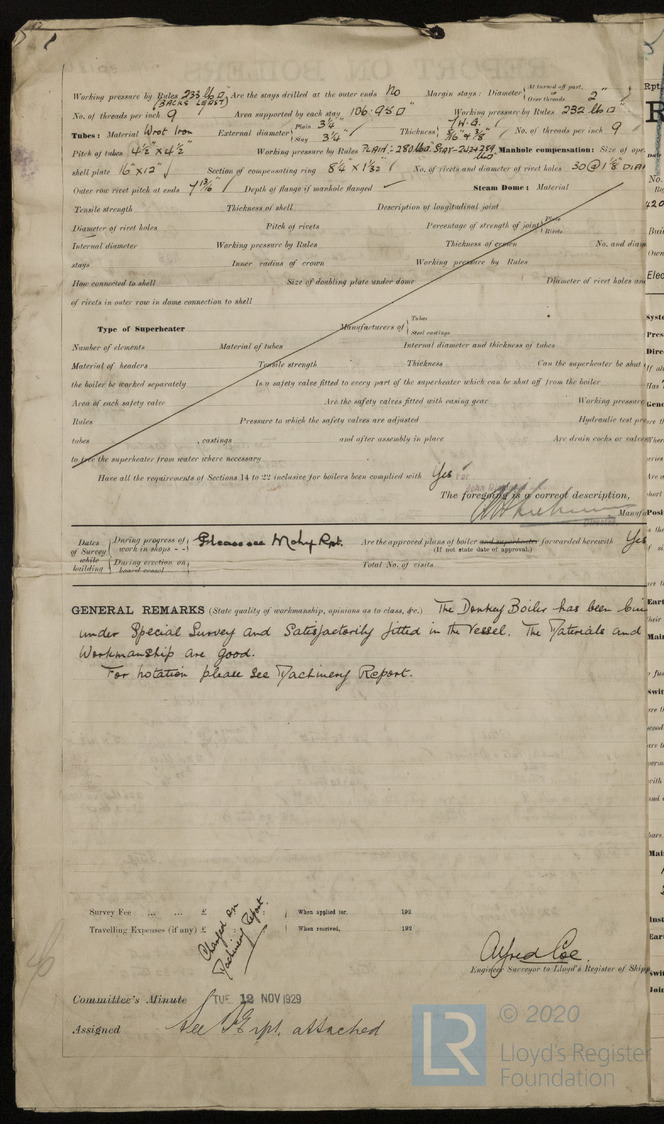 Working pressure by Rules 233 lb □" Are the stays drilled at the outer ends No Margin stays: Diameter { At turned off part, Over threads 2"
(BACKS LEAST)
No. of threads per inch 9 Area supported by each stay 106.95 □" Working pressure by Rules 232 lb □"
Tubes: Material Wrot Iron External diameter { Plain 3¼" Stay 3¼" Thickness { 7 W.G. 5/16" & 3/8" No. of threads per inch 9
Pitch of tubes 4½" x 4½" Working pressure by Rules PLAIN: 280 lbs. STAY- Manhole compensation: Size of ope
shell plate 16" x 12" Section of compensating ring 8¼" x 1 1/32" No. of rivets and diameter of rivet holes 30 @ 1⅛" DIA
Outer row rivet pitch at ends 7 13/16" Depth of flange if manhole flanged Steam Dome: Material
Tensile strength Thickness of shell Description of longitudinal joint
Diameter of rivet holes Pitch of rivets Percentage of strength of joint { Plate Rivets
Internal diameter Working pressure by Rules Thickness of crown No. and diam
stays Inner radius of crown Working pressure by Rules
How connected to shell Size of doubling plate under dome Diameter of rivet holes an
of rivets in outer row in dome connection to shell
Type of Superheater Manufacturers of { Tubes Steel castings
Number of elements Material of tubes Internal diameter and thickness of tubes
Material of headers Tensile strength Thickness Can the superheater be shut
the boiler be worked separately Is a safety valve fitted to every part of the superheater which can be shut off from the boiler
Area of each safety valve Are the safety valves fitted with easing gear Working pressure
Rules Pressure to which the safety valves are adjusted Hydraulic test pre
tubes , castings and after assembly in place Are drain cocks or valves
to free the superheater from water where necessary
Have all the requirements of Sections 14 to 22 inclusive for boilers been complied with Yes
For
The foregoing is a correct description,
Manufa
Director
Dates of Survey while building { During progress of work in shops - - Please see Mchy Rpt. Are the approved plans of boiler and superheater forwarded herewith Yes
(If not state date of approval.)
During erection on board vessel Total No. of visits
GENERAL REMARKS (State quality of workmanship, opinions as to class, &c.) The Donkey Boiler has been
under Special Survey and Satisfactorily fitted in the Vessel. The Materials and
Workmanship are good.
For notation please see Machinery Report.
Survey Fee ... ... £ When applied for, 192
Travelling Expenses (if any) £ When received, 192
Charged on
Machinery Report.
Alfred Coe.
Engineer Surveyor to Lloyd's Register of Shipp
Committee's Minute TUE 12 NOV 1929
Assigned See rpt. attached
© 2020
LR
Lloyd's Register
Foundation